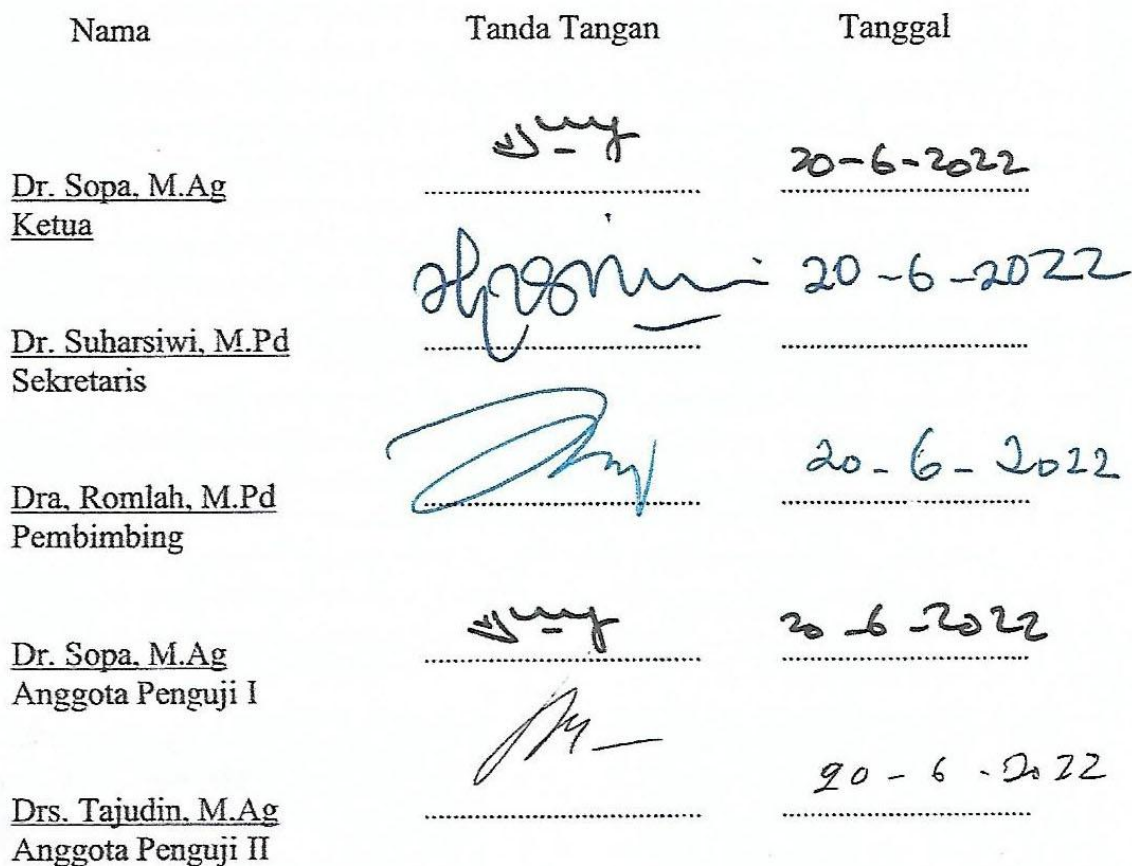 Nama Tanda Tangan Tanggal
20-6-2022
Dr. Sopa, M.Ag ........................................ ....................................
Ketua
20-6-2022
Dr. Suharsiwi, M.Pd ........................................ ....................................
Sekretaris
20-6-2022
Dra, Romlah, M.Pd ........................................ ....................................
Pembimbing
20-6-2022
Dr. Sopa, M.Ag ........................................ ....................................
Anggota Penguji I
20-6-2022
Drs. Tajudin, M.Ag ........................................ ....................................
Anggota Penguji II